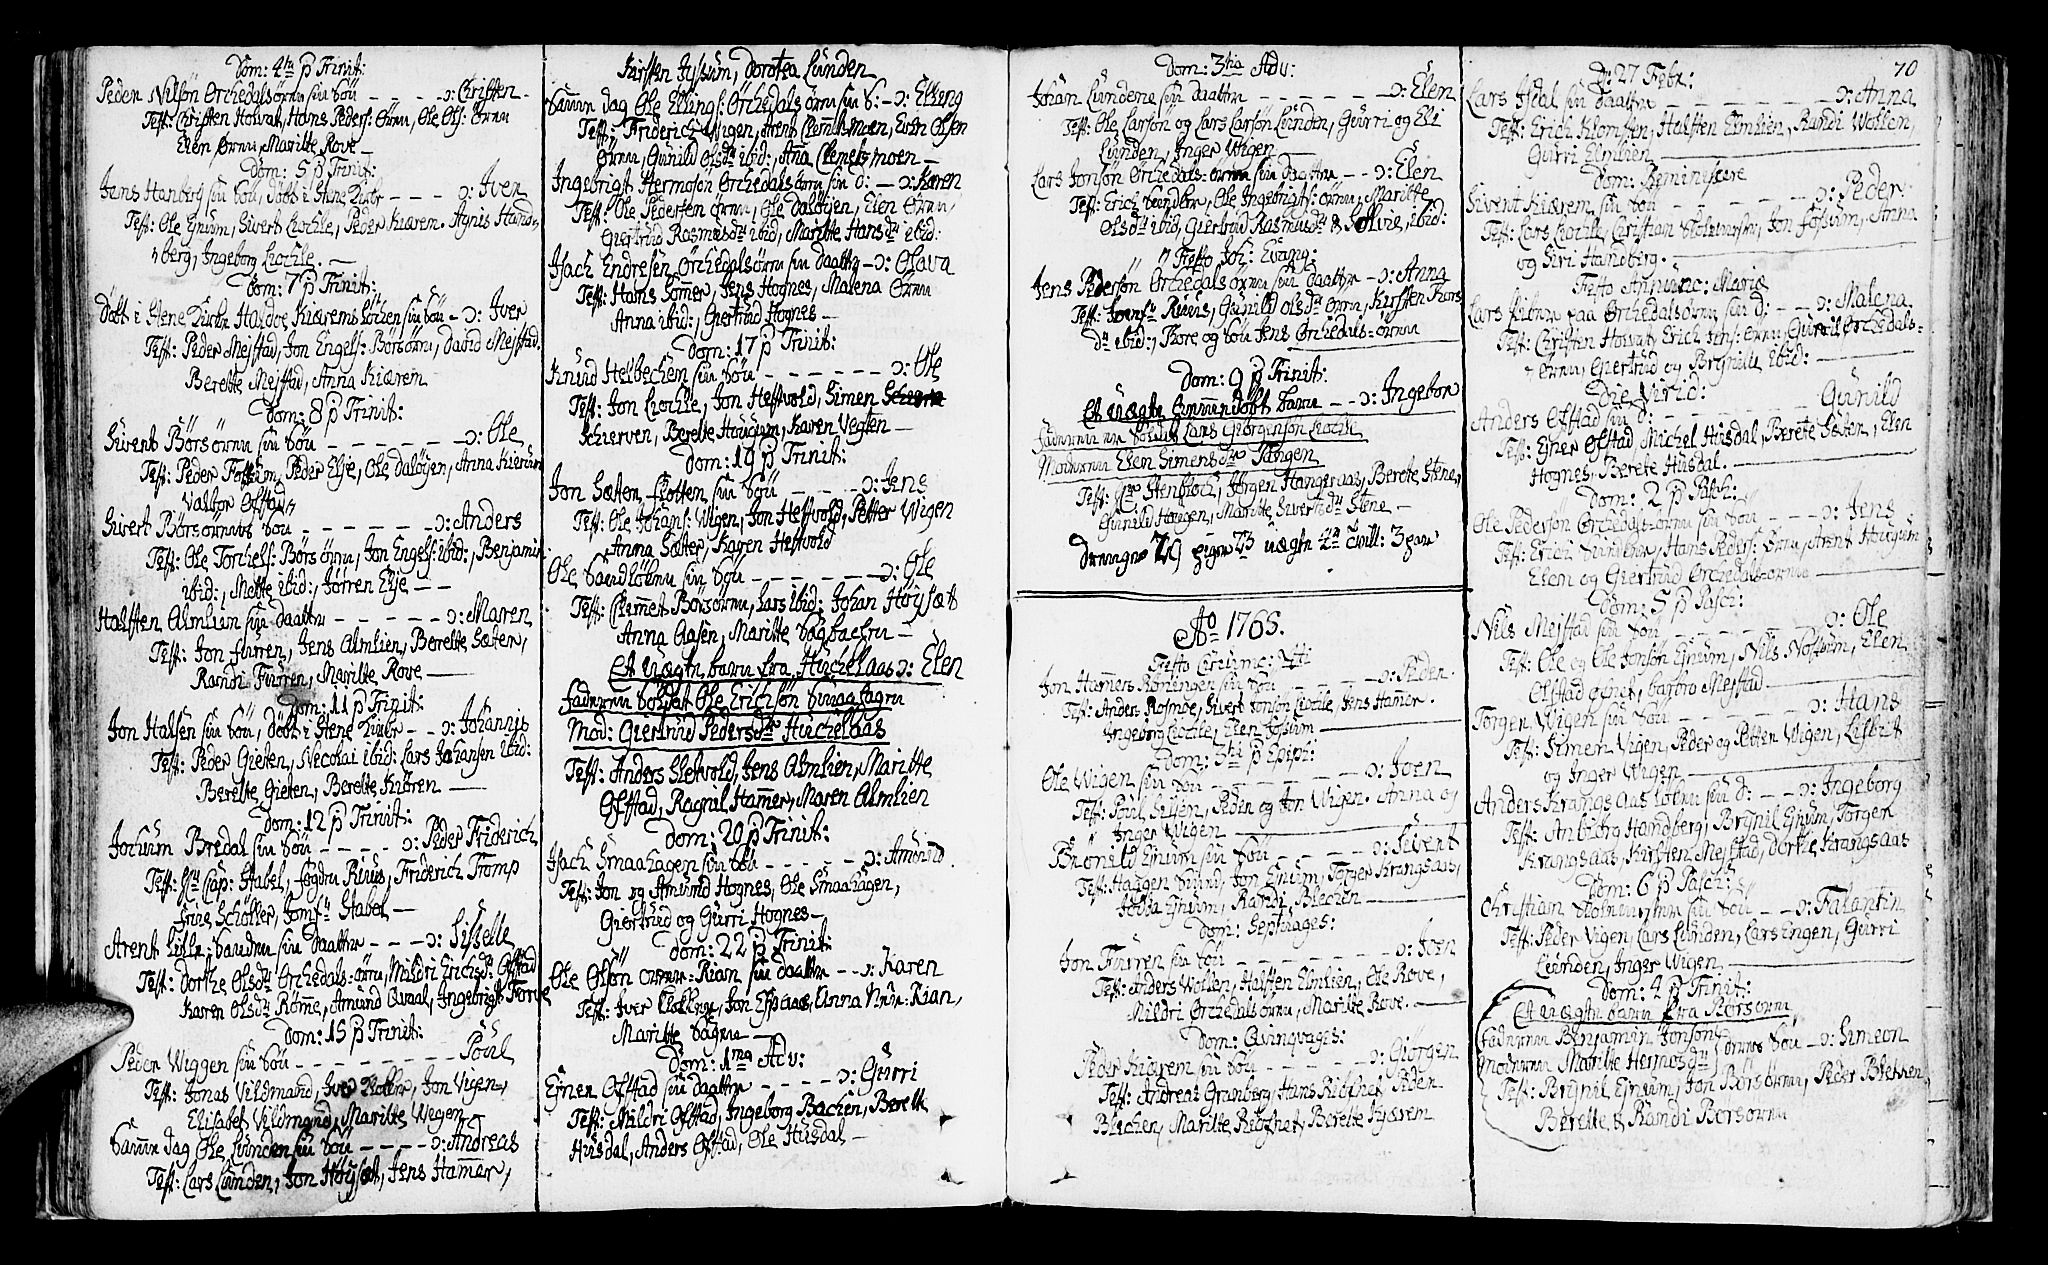 Dom: 4ta p Trinit:
Peder Nilsøn Orchedalsøren sin Søn - - - - ɔ: Christen
Test: Christen Holvat, Hans Peders: Øren, Ole Ols: Øren
Elen Øren, Maritte Rove
Dom: 5 p Trinit:
Jens Hanberg sin Søn, døbt i Stene Kirke - - - ɔ: Iver
Test: Ole Gjnum, Sivert Lochle, Peder Kiærem. Agnis Hand-
berg, Ingeborg Lochle.
Dom: 7 p Trinit:
døbt i Stene Kirke Haldoe Kiæremsløkken sin Søn - ɔ: Iver
Test: Peder Mejstad, Jon Engels: Børsøren, David Mejstad.
Berette Mejstad, Anna Kiærem
Dom: 8 p Trinit:
Sivert Børsøren sin Søn - - - - - - - ɔ: Ole
Test: Peder Fossum, Peder Elje, Ole Daløyen, Anna Kierum
Valbor Ofstad
Sivert Børsørens Søn - - - - - - ɔ: Anders
Test: Ole Torchels: Børsøren, Jon Engels: ibid:, Benjamin
ibid:, Mette ibid:, Jørren Elje
Halsten Almlien sin Datter - - - - - ɔ: Maren
Test: Jon Furren, Jens Almlien, Berette Sæter,
Randi Furren, Maritte Rove
Dom: 11 p Trinit:
Jon Halsen sin Søn, døbt i Stene Kirke - - ɔ: Johannis
Test: Peder Gieten, Necolai ibid: Lars Johansen ibid:
Berette Gieten, Berette Kiøren
Dom: 12 p Trinit:
Jochum Bredal sin Søn - - - - - ɔ: Peder Friderich
Test: Hr Cap: Stabel, Fogden Riuus, Friderich Tromp
Frue Schøller, Jomfr Stabel
Arent Lille-Sanden sin Datter - - - ɔ: Sisselle
Test: Dorthe Olsdr Orchedals-øren, Mildri Erichsdr Ofstad
Karen Olsdr Romme, Amund Qvaal, Ingebrigt Torve
Dom: 15 p Trinit:
Peder Wiggen sin Søn - - - - - - - Poul
Test: Jonas Vildmand, Iver Kollen, Jon Vigen,
Elisabet Vildmand, Maritte Wegen
Samme dag Ole Lunden sin Søn - - - - ɔ: Andreas
Test: Lars Lunden, Jon Høysæt, Jens Hammer,
Kirsten Jyssum, Dorotea Lunden
Samme dag Ole Ellings: Orchedalsøren sin S: - ɔ: Elling
Test: Friderich Wigen, Arent Clemetsmoen, Even Olsen
Øren, Gunild Olsdr ibid:, Anna Clemetsmoen
Ingebrigt Hermosøn Orchedalsøren sin d: - ɔ: Karen
Test: Ole Pedersen Øren, Ole Daløyen, Elen Øren,
Giertrud Rasmusdr ibid, Maritte Hansdr ibid:
Isach Endresen Orchedalsøren sin Daatter - ɔ: Olava
Test: Hans Sommer, Jens Hognes, Malena Øren
Anna ibid:, Giertrud Hognes
Dom: 17 p Trinit:
Knud Helbechen sin Søn - - - - - - - ɔ: Ole
Test: Jon Lochle, Jon Hestvold, Simen
Schierven, Berette Hougum, Karen Vegten
Dom: 19 p Trinit:
Jon Sæten flotten sin Søn - - - - - ɔ: Jens
Test: Ole Johans: Wigen, Jon Hestvold, Petter Wigen
Anna Sætter, Karen Hestvold
Ole Sandløken sin Søn - - - - - - ɔ: Ole
Test: Clemmet Børsøren, Lars ibid: Johan Høysæt
Anna Aasen, Maritte Sagbacken
Et uægte barn fra Huchelaas ɔ: Elen
Faderen Soldat Ole Erichsøn Svinaa
Mod: Giertrud Pedersdr Huchelaas
Test: Anders Sletvold, Jens Almlien, Maritte
Ofstad, Ragnil Hammer, Maren Almlien
Dom: 20 p Trinit:
Isach Smaahagen sin Søn - - - - - ɔ: Amund
Test: Jon og Amund Hognes, Ole Smaahagen,
Giertrud og Gurri Hognes
Dom: 22 p Trinit:
Ole Olsøn Rian sin Daatter - - ɔ: Karen
Test: Iver Jon Espaas, Anna Rian,
Maritte Sagen
Dom: 1ma Adv:
Ejner Ofstad sin Daatter - - - - ɔ: Gurri
Test: Mildri Ofstad, Ingeborg Bachen, Berette
Husdal, Anders Ofstad, Ole Husdal
Dom: 3tia Adv:
Johan Lundene sin Daatter - - - - - - - ɔ: Elen
Test: Ole Larsøn og Lars Larsøn Lunden, Gurri og Eli
Lunden, Inger Wigen
Lars Jonsøn Orchedals-øren sin Daatter - - ɔ: Elen
Test: Erich Sundlien, Ole Ingebrigts: øren, Maritte
Olsdr ibid, Giertrud Rasmusdr & Solvie, ibid:
Festo Joh: Evang:
Jens Pedersøn Orchedalsøren sin Daatter - ɔ: Anna
Test: Jomfr Riuus, Gunild Olsdr øren, Kirsten Tors
dr ibid:, Tore og Søn Jens Orchedals-øren
Dom: 9 p Trinit:
Et uægte hjemmedøbt barn - - ɔ: Ingebor
Faderen er Soldat Lars Giørgensøn Lochle
Moderen Elen Simensdr Tangen
Test: Hr Stenbloch, Jørgen Hangeraas, Berete Stene,
Gunild Haugen, Maritte Siversdr Stene
Drenge 29 piger 23 uægte 4 tvill: 3 par
Ao 1765.
Festo Circumc: Xsti
Jon Hammers Røningen sin Søn - - - - - ɔ: Peder
Test: Anders Rosmoe, Sivert Jonsøn Lochle, Jens Hamer.
Ingeborg Lochle, Elen Fossum
Dom: 3tia p Epiph:
Ole Wigen sin Søn - - - - - - - ɔ: Joen
Test: Poul Sesen, Peder og Jon Wigen. Anna og
Inger Wigen
Brønild Gjnum sin Søn - - - - - - ɔ: Sivert
Test: Haagen Sund, Jon Gjnum, Torger Krangsaas,
Jodda Gjnum, Randi Blechen
Dom: Septuages:
Jon Furren sin Søn - - - - - - - - ɔ: Joen
Test: Anders Wollen, Halsten Elmlien, Ole Rove,
Mildri Orchedalsøren, Maritte Rove.
Dom: Qvinqvages:
Peder Kiærem sin Søn - - - - - - ɔ: Giørgen
Test: Andreas Granberg, Hans Peder
Blechen, Maritte Berette Kjærem
70
d: 27 Febr:
Lars Isdal sin Daatter - - - - - - - ɔ: Anna
Test: Erich Klomsten, Halsten Elmlien, Randi Wollen,
Gurri Elmlien
Dom: Reminiscere
Sivert Kiærem sin Søn - - - - - - - ɔ: Peder
Test: Lars Lochle, Christian Jon Fossum, Anna
og Siri Handberg.
Festo Annunc: Mariæ
Lars paa Orchedalsøren sin d: - - ɔ: Malena
Test: Christen Holvat, Erich Jens: øren, Gunnil Orchedals-
øren, Giertrud og Brynille ibid:
Die Virid:
Anders Ofstad sin d: - - - - - - - Gunild
Test: Ejner Ofstad, Michel Husdal, Berete Sæten, Elen
Hognes, Berete Husdal.
Dom: 2 p Pasch:
Ole Pedersøn Orchedals-øren sin Søn - - - - ɔ: Jens
Test: Erich Sundlien, Hans Peders: øren, Arent Hougum
Elen og Giertrud Orchedals-øren
Dom: 5 p Pasch:
Nils Mejstad sin Søn - - - - - - - ɔ: Ole
Test: Ole og Ole Jonsøn Gjnum, Nils Elen
Olstad Barbro Mejstad
Torgen Wigen sin Søn - - - - - - ɔ: Hans
Test: Simen Vigen, Peder og Petter Wigen, Lisbet
og Inger Wigen
Anders Krangsaas løken sin d: - - - ɔ: Ingeborg
Test: Anbiørg Handberg, Brynil Gjnum, Torgen
Krangsaas, Kirsten Mejstad, Dorthe Krangsaas
Dom: 6 p Pasch:
Christian sin Søn - - - ɔ: Falantin
Test: Peder Vigen, Lars Lunden, Lars Engen, Gurri
Lunden, Inger Wigen
Dom: 4 p Trinit:
Et uægte Barn fra Børsøren
Faderen Benjamin Jonsøn
Moderen Maritte Hermosdr deres Søn - ɔ: Simeon
Test: Brynil Gjnum, Jon Børsøren, Peder Blechen,
Berette & Randi Børsøren